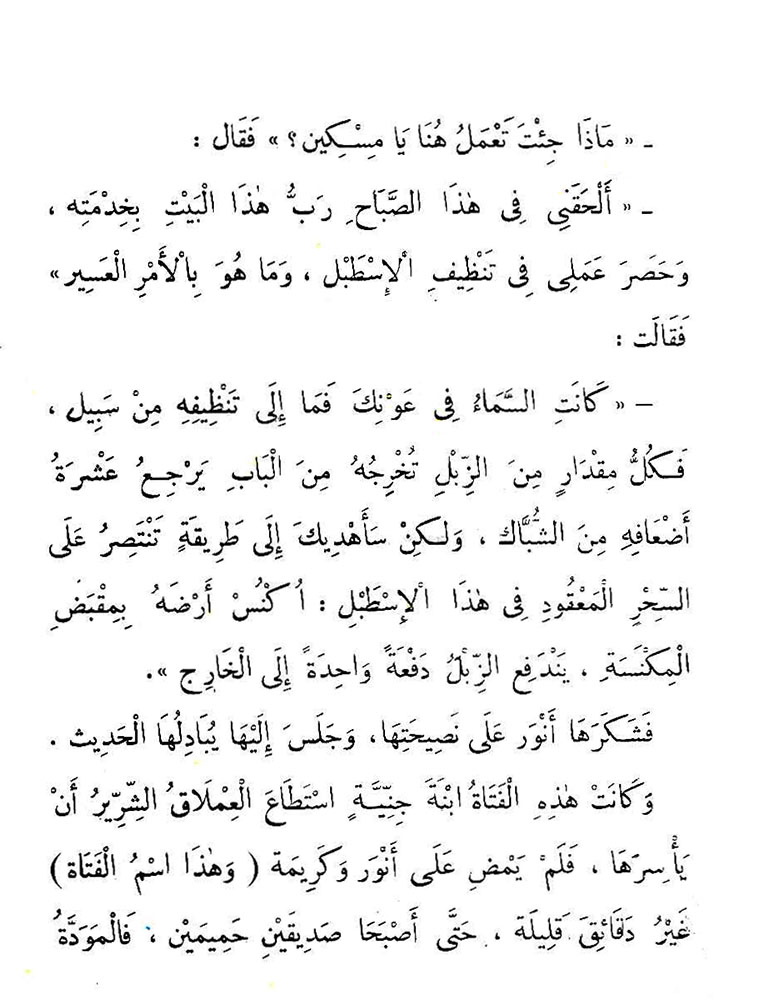 ـ « مَاذَا جِئْتَ تَعْمَلُ هُنَا يَا مِسْكِين ؟ » فَقَال :
ـ « أَلْحَقَنِي فِى هٰذَا الصَّبَاحِ رَبُّ هٰذَا الْبَيْتِ بِخِدْمَتِه ،
وَحَصَرَ عَمَلِى فِى تَنْظِيفِ الْإِسْطَبْل ، وَمَا هُوَ بِالْأَمْرِ الْعَسِير »
فَقَالَت :
— « كَانَتِ السَّمَاءُ فِى عَوْنِكَ فَمَا إِلَى تَنْظِيفِهِ مِنْ سَبِيلِ ،
فَكُلُّ مِقْدَارٍ مِنَ الزِّبْلِ تُخْرِجُهُ مِنَ الْبَابِ يَرْجِعُ عَشْرَةُ
أَضْعَافِهِ مِنَ الشُّبَّاك ، وَلٰكِنْ سَأَهْدِيكَ إِلَى طَرِيقَةٍ تَنْتَصِرُ عَلَى
السِّحْرِ الْمَعْقُودِ فِى هٰذَا الْإِسْطَبْلِ : اُكْنُسْ أَرْضَهُ بِمِقْبَضِ
الْمِكْنَسَةِ ، يَنْدَفِعِ الزِّبْلُ دَفْعَةً وَاحِدَةً إِلَى الْخَارِج ».
فَشَكَرَهَا أَنْوَر عَلَى نَصِيحَتِهَا، وَجَلَسَ إِلَيْهَا يُبَادِلُهَا الْحَدِيث .
وَكَانَتْ هٰذِهِ الْفَتَاةُ ابْنَةَ جِنِّيَّةٍ اسْتَطَاعَ الْعِمْلَاقُ الشِّرِّيرُ أَنْ
يَأْسِرَهَا ، فَلَمْ يَمْضِ عَلَى أَنْوَر وَكَرِيمَة ( وَهٰذَا اسْمُ الْفَتَاة )
غَيْرُ دَقَائِقَ قَلِيلَة ، حَتَّى أَصْبَحَا صَدِيقَيْنِ حَمِيمَيْن ، فَالْمَوَدَّةُ